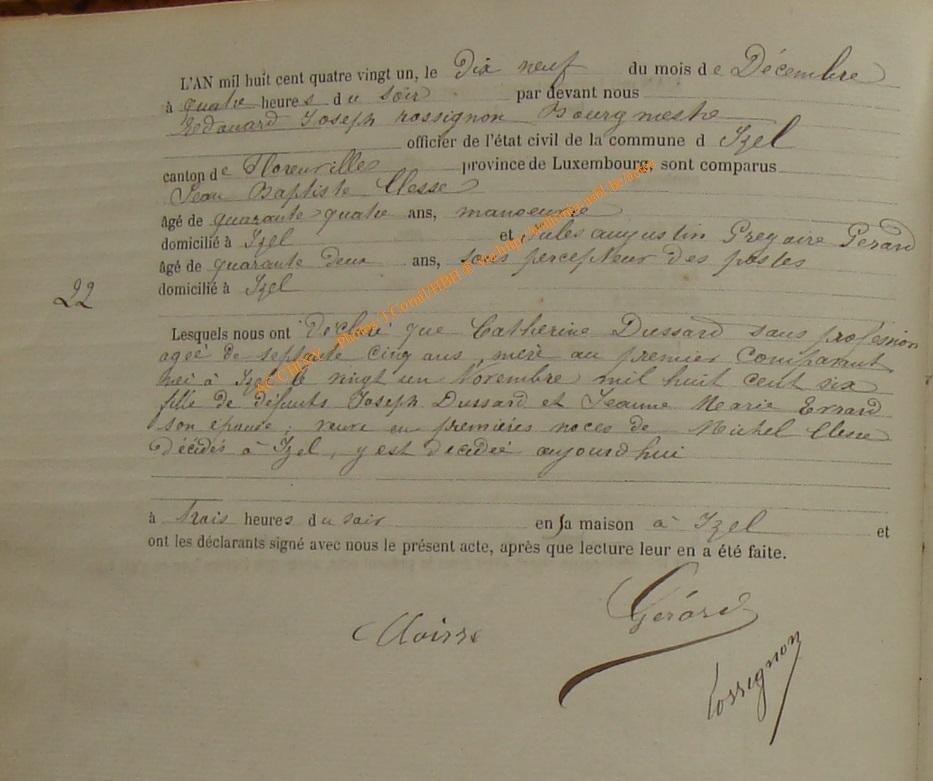 L'AN mil huit cent quatre vingt un, le dix neuf du mois de Décembre
à quatre heures du soir par devant nous
Rossignon Joseph Bourgmestre
officier de l'état civil de la commune d Izel
canton de Florenville province de Luxembourg, sont comparus
Jean Baptiste Clesse
âgé de quarante quatre ans, manoeuvre
domicilié à Izel et Jules augustin Gregoire Gerard
âgé de quarante deux ans, sous percepteur des postes
domicilié à Izel
22
Lesquels nous ont déclaré que Catherine Dussard sans profession
agée de septante cinq ans, mère au premier comparant
née à Izel le vingt un Novembre mil huit cent six
fille de défunts Joseph Dussard et Jeanne Marie Errard
son epouse, veuve en premières noces de Michel Clesse
décédés à Izel, y est décédée aujourd'hui
à trois heures du soir en sa maison à Izel et
ont les déclarants signé avec nous le présent acte, après que lecture leur en a été faite.
Gérard
Rossignon